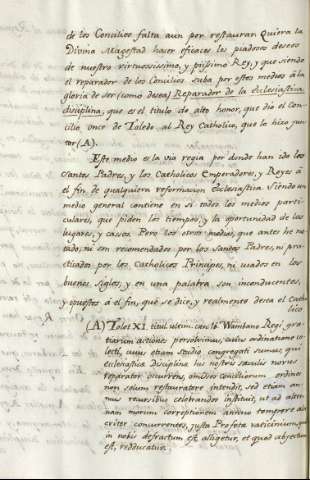 de los Concilios falta aun por restaurar. Quiera la
Divina Magestad hacer eficaces los piadosos deseos
de nuestro virtuossisimo, y piissimo Rey, y que siendo
el reparador de los Concilios suba por estos medios á la
gloria de ser (como desea) Reparador de la eclesiastica
disciplina, que es el titulo de alto honor, que dio el Con-
cilio once de Toledo al Rey Catholico, que lo hizo jun-
tar (A).
Este medio es la via regia por donde han ido los
Santos Padres, y los Catholicos Emperadores, y Reyes á
el fin de qualquiera reformacion Ecclesiastica. Siendo un
medio general contiene en si todos los medios parti-
culares, que piden los tiempos, y la oportunidad de los
lugares, y casos. Pero los otros medios, que antes he no-
tado, ni son recomendados por los Santos Padres, ni pra-
cticados por los Catholicos Principes, ni usados en los
buenos siglos, y en una palabra son inconducentes,
y opuestos á el fin, que se dice, y realmente desea el Catho
lico
(A) Tolet. XI. titul. ultim. can. 16. Wambano Regi gra-
tiarum actiones persolvimus, cuius ordinatione co-
lecti, cuius etiam studio congregati sumus, qui
ecclesiastica disciplina his nostris saeculis novus
reparator occurrens, omissos conciliorum ordines
non solum restaurare intendit, sed etiam an-
nuis recursibus celebrandos instituit, ut ad alter-
nam morum correptionem annuo tempore ala-
criter concurrentes, juxta Profeta vaticinium, quod
in nobis defractum est alligetur, et quod abjectum
est, reducatur.